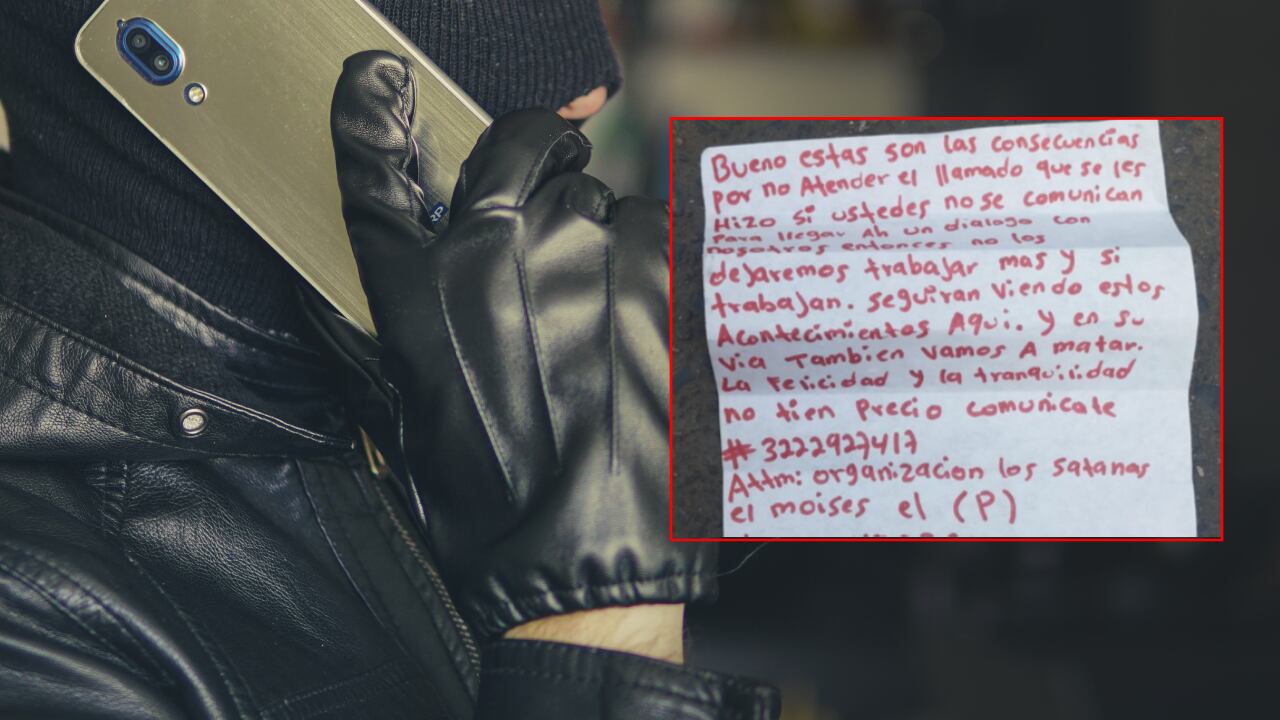 Bueno estas son las consecuencias
por no Atender el llamado que se les
Hizo si ustedes no se comunican
Para llegar Ah un dialogo con
nosotros entonces no los
dejaremos trabajar mas y si
trabajan. seguiran viendo estos
Acontecimientos Aqui. y en su
via Tambien vamos A matar.
La Felicidad y la tranquilidad
no tien Precio comunicate
# 3222927417
Attm: organizacion los satanas
el moises el (P)